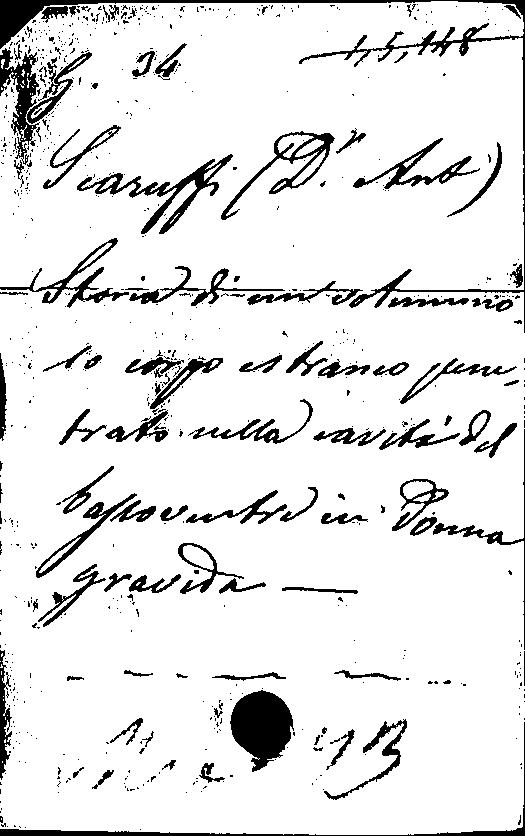 G. 34 1,5,148
Scaruffi (Dr. Ant)
Storia di un volumino
so corpo estraneo pene-
trato nella cavità del
bassoventre in Donna
gravida —